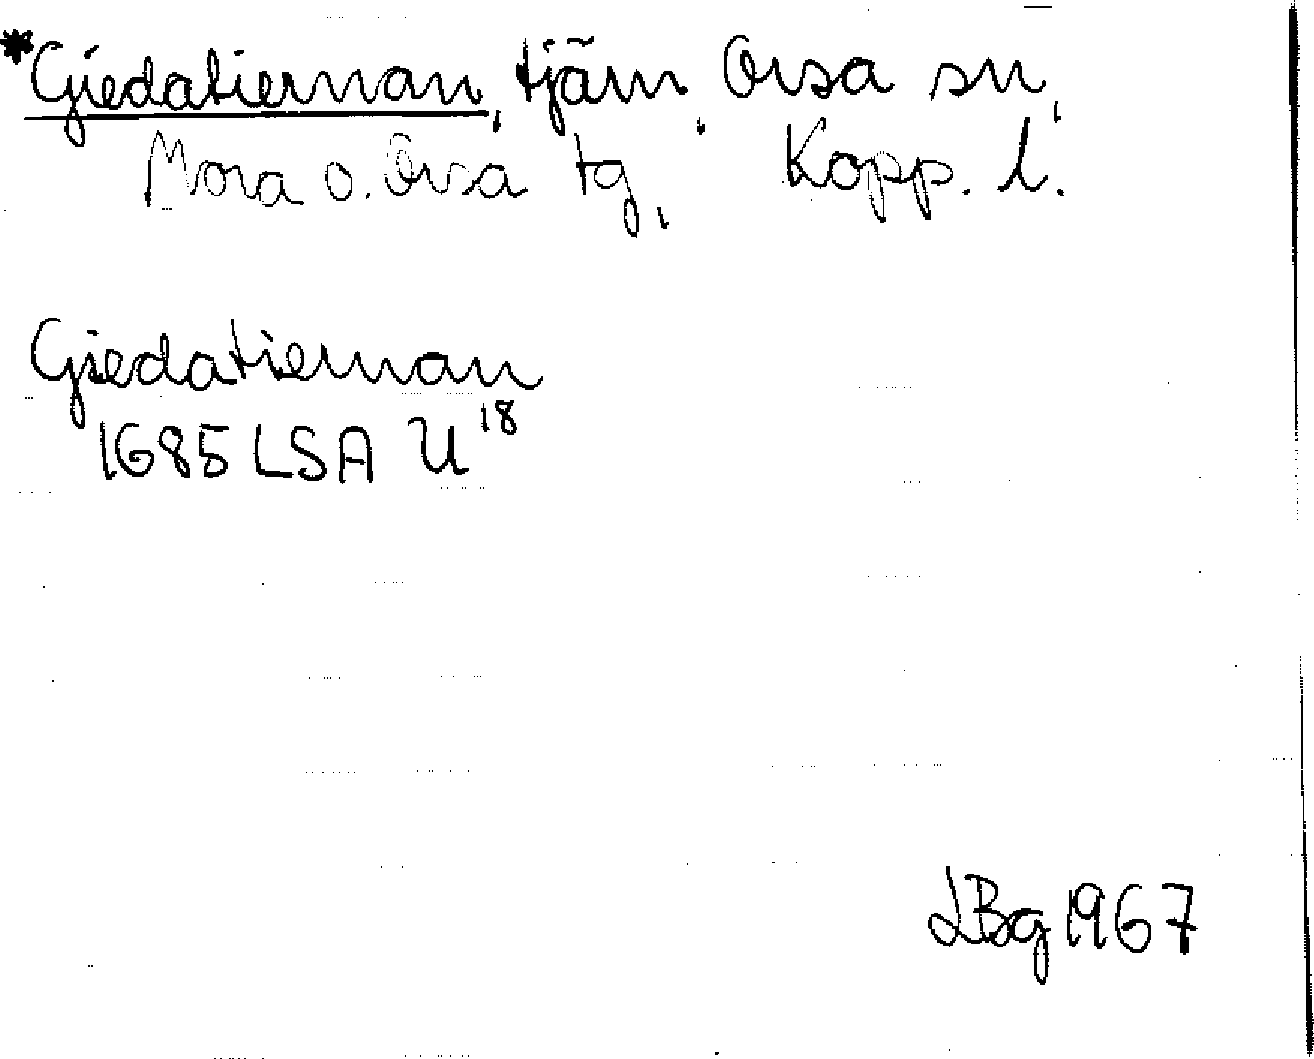 *Giedatiernan, tjärn, Orsa sn,
Mora o. Orsa tg, Kopp. l.
Giedatiernan
1685 LSA U¹⁸
LBg 1967